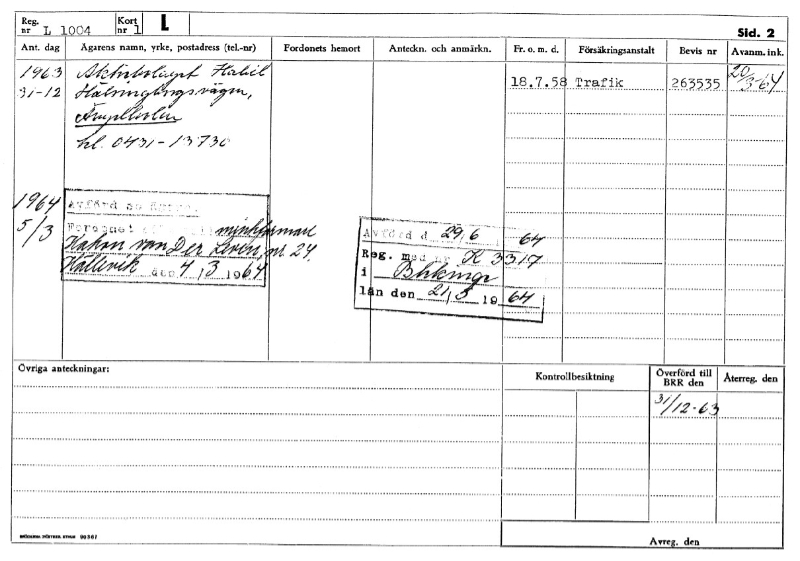 Reg. nr L 1004 Kort nr 1 L
Sid. 2
Ant. dag Ägarens namn, yrke, postadress (tel.-nr) Fordonets hemort Anteckn. och anmärkn. Fr. o. m. d. Försäkringsanstalt Bevis nr Avanm. ink.
1963 Aktiebolaget
31-12 Hälsingborgsvägen,
Ängelholm
tel. 0431-13730
18.7.58 Trafik 263535 20/3-64
1964
5/3
Avförd
minkfarmare
Håkan von Der nr 24,
Hällevik den 4/3 1964
Avförd d 29/6 64
Reg. med nr K 3317
i Blekinge
län den 21/5 1964
Övriga anteckningar:
Kontrollbesiktning
Överförd till BRR den
Återreg. den
31/12-63
Avreg. den